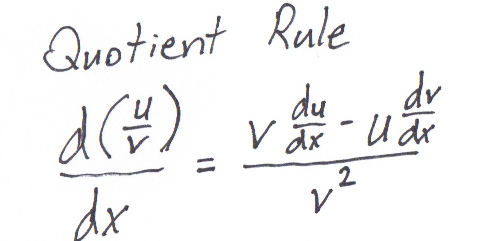 Quotient Rule
d(u/v)/dx = (v du/dx - u dv/dx)/v²